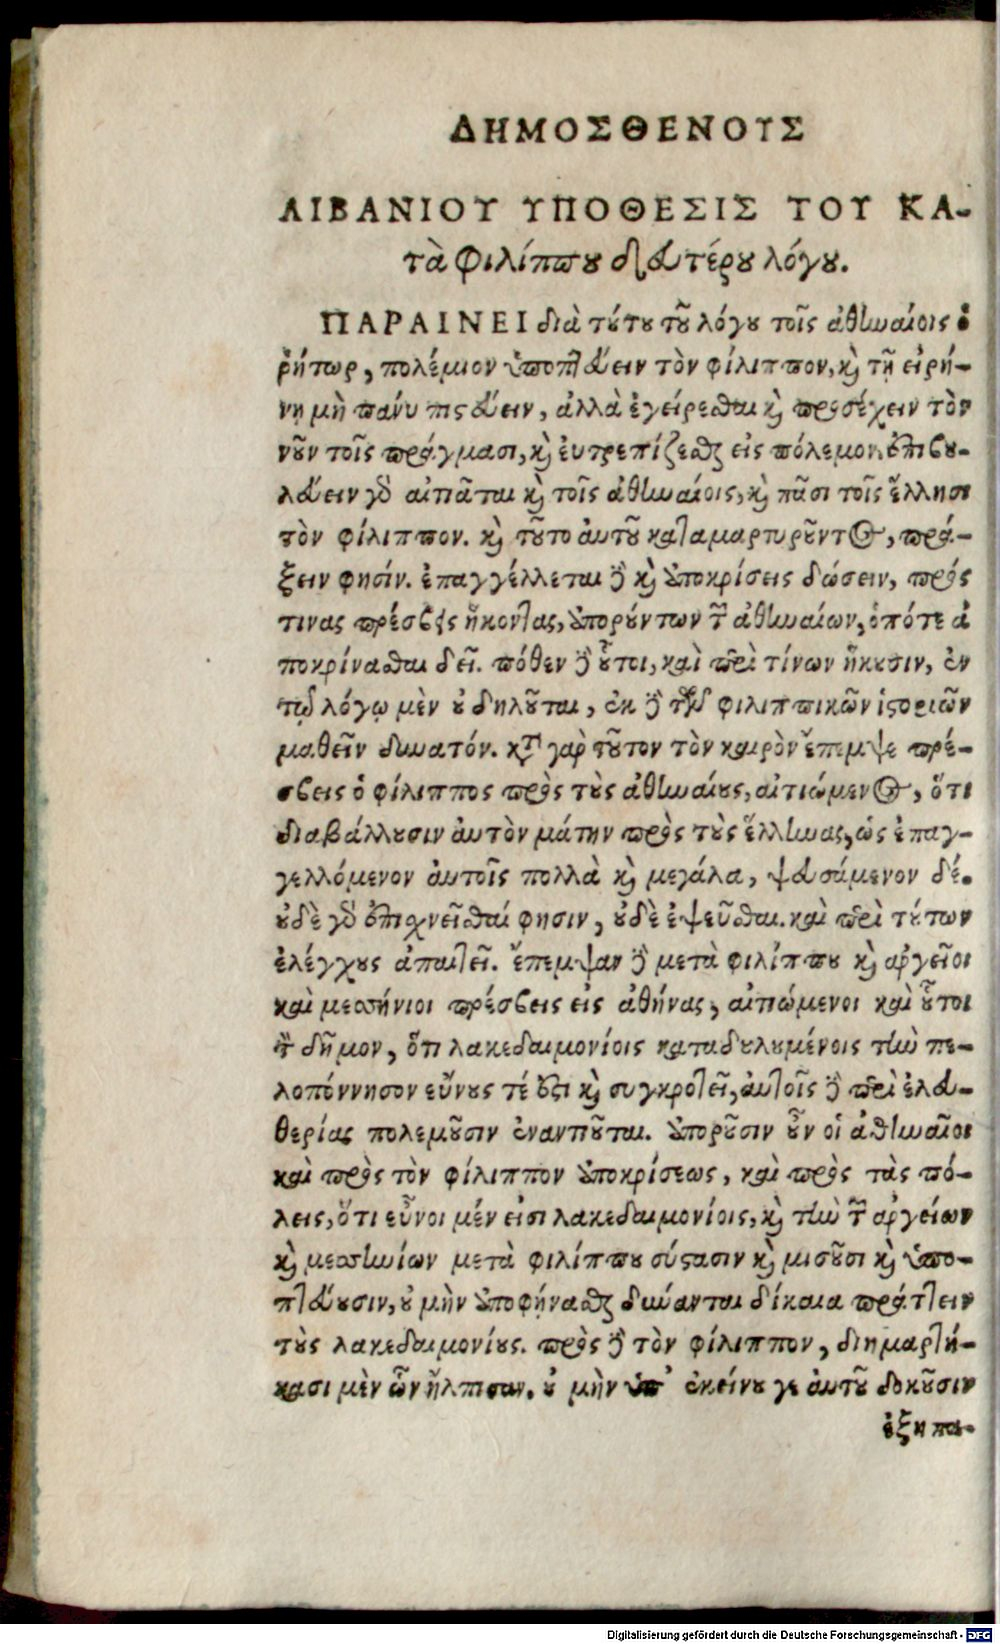 ΔΗΜΟΣΘΕΝΟΥΣ
ΛΙΒΑΝΙΟΥ ΥΠΟΘΕΣΙΣ ΤΟΥ ΚΑ-
τὰ Φιλίππου δευτέρου λόγου.
ΠΑΡΑΙΝΕΙ διὰ τούτου τοῦ λόγου τοῖς ἀθηναίοις ὁ
ῥήτωρ, πολέμιον ὑποπτεύειν τὸν φίλιππον, καὶ τῇ εἰρή-
νῃ μὴ πάνυ πιστεύειν, ἀλλὰ ἐγείρεσθαι καὶ προσέχειν τὸν
νοῦν τοῖς πράγμασι, καὶ ἐυτρεπίζεσθαι εἰς πόλεμον. ἐπιβου-
λεύειν γὸ αἰτιᾶται καὶ τοῖς ἀθηναίοις, καὶ πᾶσι τοῖς ἕλλησι
τὸν φίλιππον. καὶ τοῦτο ἀυτοῦ καταμαρτυροῦντος, πρά-
ξειν φησίν. ἐπαγγέλλεται δὲ καὶ ἀποκρίσεις δώσειν, πρός
τινας πρέσβεις ἥκοντας, ἀπορούντων τῶν ἀθηναίων, ὁπότε ἀ
ποκρίνασθαι δεῖ. πόθεν δὲ οὗτοι, καὶ περὶ τίνων ἥκουσιν, ἐν
τῷ λόγῳ μὲν οὐ δηλοῦται, ἐκ δὲ τῶν φιλιππικῶν ἱστοριῶν
μαθεῖν δυνατόν. κατὰ γὰρ τοῦτον τὸν καιρὸν ἔπεμψε πρέ-
σβεις ὁ φίλιππος πρὸς τοὺς ἀθηναίους, αἰτιώμενος, ὅτι
διαβάλλουσιν ἀυτὸν μάτην πρὸς τοὺς ἕλληνας, ὡς ἐπαγ-
γελλόμενον ἀυτοῖς πολλὰ καὶ μεγάλα, ψευσάμενον δέ.
οὐδὲ γὸ ἐπιχνεῖσθαί φησιν, οὐδὲ ἐψεῦσθαι. καὶ περὶ τούτων
ἐλέγχους ἀπαιτεῖ. ἔπεμψαν δὲ μετὰ φιλίππου καὶ ἀργεῖοι
καὶ μεσσήνιοι πρέσβεις εἰς ἀθήνας, αἰτιώμενοι καὶ οὗτοι
τὸν δῆμον, ὅτι λακεδαιμονίοις καταδουλουμένοις τὴν πε-
λοπόννησον εὔνους τέ ἐστι καὶ συγκροτεῖ, ἀυτοῖς δὲ περὶ ἐλευ-
θερίας πολεμοῦσιν ἐναντιοῦται. ἀποροῦσιν οὖν οἱ ἀθηναῖοι
καὶ πρὸς τὸν φίλιππον ἀποκρίσεως, καὶ πρὸς τὰς πό-
λεις, ὅτι εὖνοι μέν εἰσι λακεδαιμονίοις, καὶ τὴν τῶν ἀργείων
καὶ μεσσηνίων μετὰ φιλίππου σύστασιν καὶ μισοῦσι καὶ ὑπο-
πτεύουσιν, οὐ μὴν ἀποφήνασθαι δύνανται δίκαια πράττειν
τοὺς λακεδαιμονίους. πρὸς δὲ τὸν φίλιππον, διημαρτή-
κασι μὲν ὧν ἤλπισαν, οὐ μὴν ὑπ' ἐκείνου γε ἀυτοῦ δοκοῦσιν
ἐξηπα-
Digitalisierung gefördert durch die Deutsche Forschungsgemeinschaft - DFG